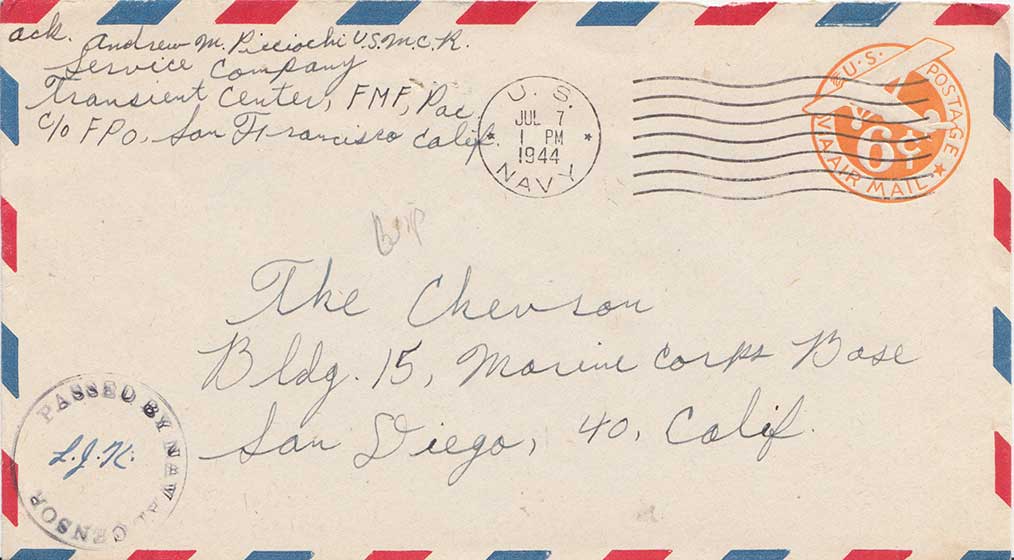 ack. Andrew M. Picciochi U.S.M.C.R.
Service Company
Transient Center, FMF, Pac
c/o FPO, San Francisco Calif.
U.S.
JUL 7
1 PM
1944
NAVY
U.S. POSTAGE
6¢
VIA AIR MAIL
The Chevson
Bldg. 15, Marine Corps Base
San Diego, 40, Calif.
PASSED BY NAVAL CENSOR
L.J.K.